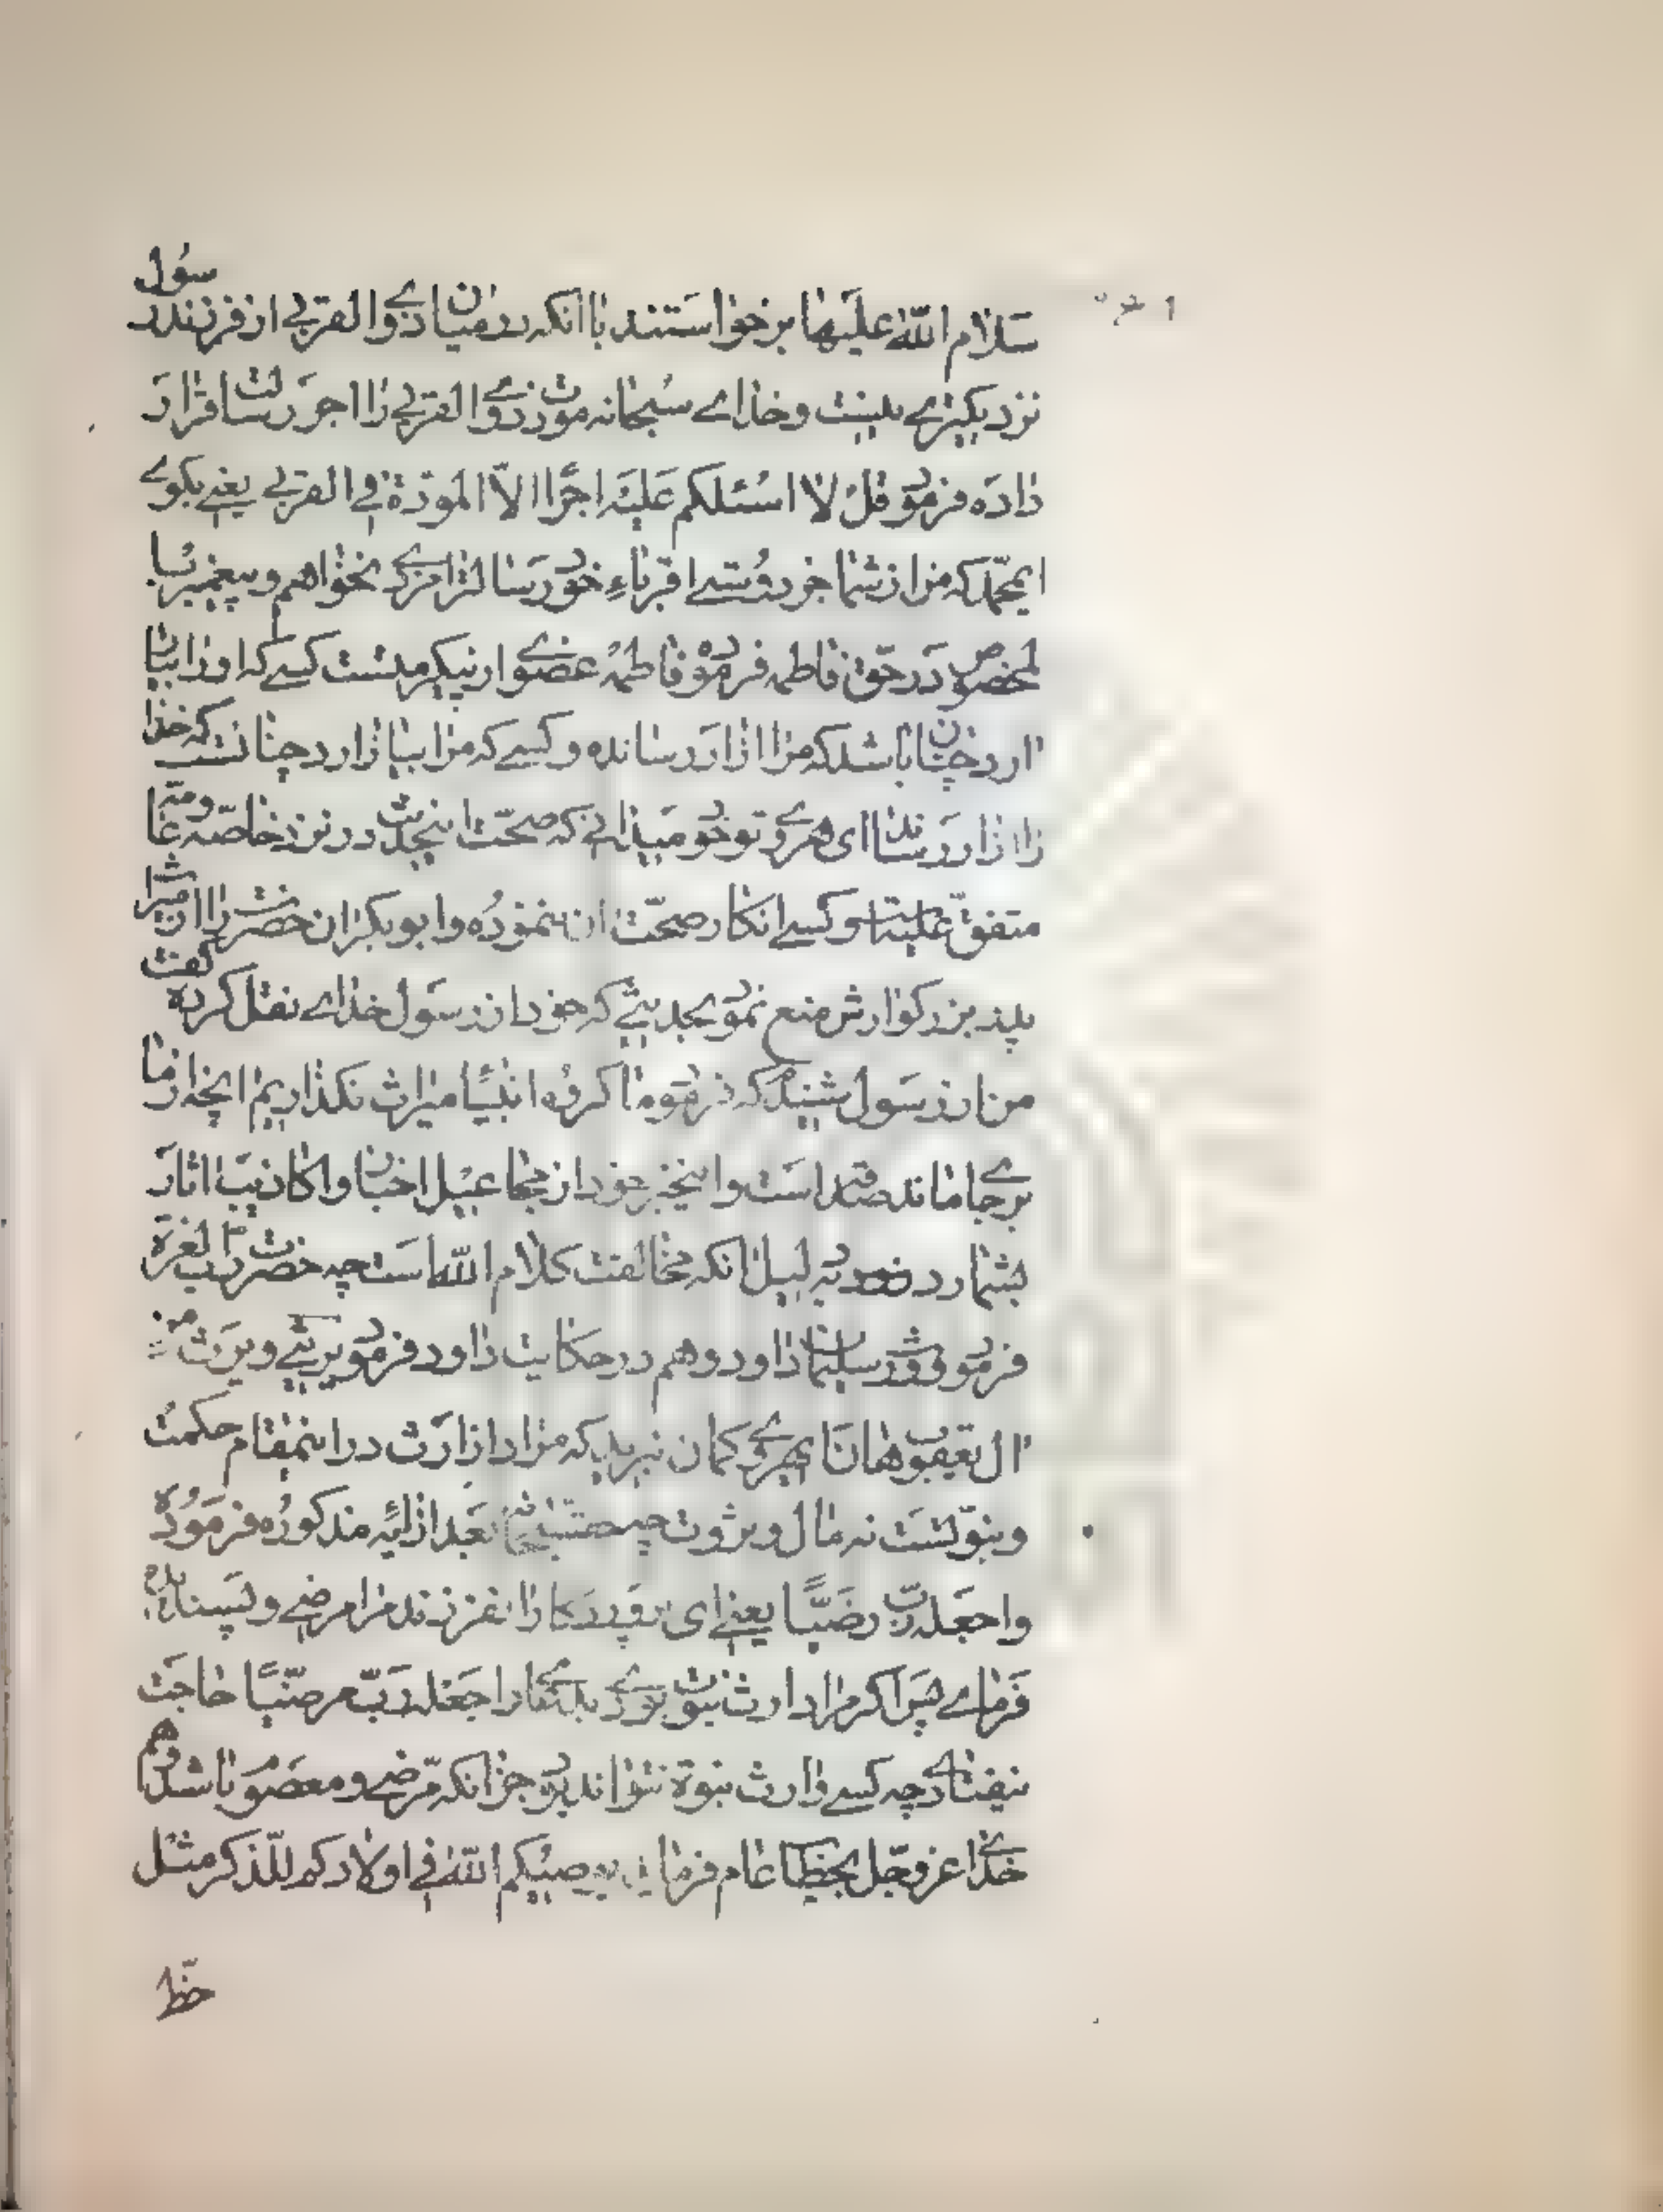 سلام الله علیها برخواستند با انکه در میان ذوی القربی از فرزند رسول
نزدیکتری نیست و خدای سبحانه مودت ذوی القربی را اجر رسالت قرار
داده فرمود قل لا اسئلکم علیه اجرا الا المودة فی القربی یعنی بکوی
ایمحمد که من از شما جز دوستی اقرباء خود رسالترا مزدی نخواهم و پیغمبر
لخصوص در حق فاطمه فرموده فاطمه عضوی از پیکر منست کسی که او را بیا
زارد چنان باشد که مرا ازار رسانده و کسی که مرا بیازارد چنانست که خدا
را ازار رساند ای هروی تو خود میدانی که صحت اینحدیث در نزد خاصه و عامه
متفق علیه است و کسی انکار صحت ان ننموده و ابوبکر ان حضرت را از میراث
پدر بزرکوارش منع نمود بحدیثی که خود از رسول خدای نقل کرده کفت
من از رسول شنیدم که فرمود ما کروه انبیا میراث نکذاریم انچه از ما
بر جای ماند صدقه است و اینخبر خود از مجاعیل اخبار و اکاذیب اثار
بشمار رود بدلیل انکه مخالفت کلام الله است چه حضرت رب العزة
فرمود و ورث سلیمان داود و هم در حکایت داود فرمود یرثنی و یرث من
ال یعقوب همانا ای هروی کمان نبرید که مراد از ارث در اینمقام حکمت
و نبوتست نه مال و ثروت چه بعد از ایه مذکوره فرموده
واجعله رب رضیا یعنی ای پروردکار انفرزند مرا مرضی و پسندیده
فرمای پس اکر مراد ارث نبوت بودی بدعای واجعله رب رضیا حاجت
نیفتادی چه کسی وارث نبوة نتواند بود جز انکه مرضی و معصوم باشد و هم
خدای عز و جل بخطاب عام فرماید یوصیکم الله فی اولادکم للذکر مثل
حظ